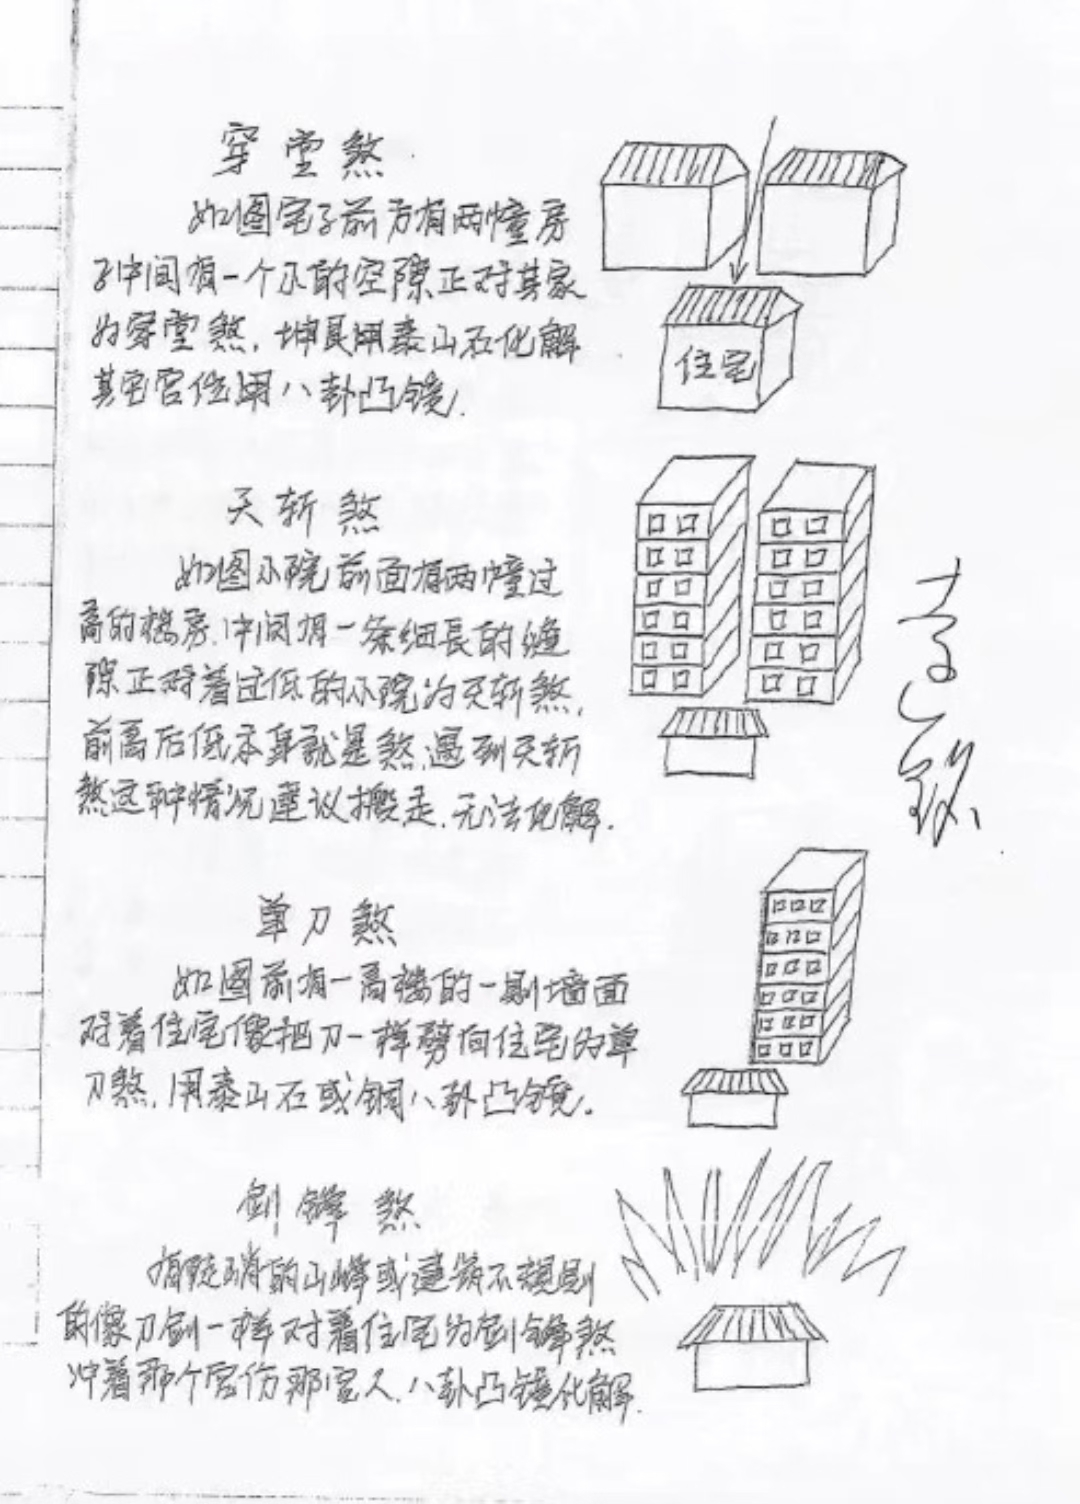 穿堂煞
如图宅子前方有两幢房
子中间有一个不的空隙正对其家
为穿堂煞，坤艮用泰山石化解
其它宫位用八卦凸镜.
住宅
天斩煞
如图小院前面有两幢过
高的楼房.中间有一条细長的缝
隙正对着过低的小院为天斩煞,
前高后低本身就是煞,遇到天斩
煞这种情况建议搬走.无法化解.
单刀煞
如图前有一高楼的一剧墙面
对着住宅像把刀一样劈向住宅为单
刀煞.用泰山石或铜八卦凸镜.
剑锋煞
有陡峭的山峰或建筑不规则
的像刀剑一样对着住宅为剑锋煞
冲着那个宫伤那宫人.八卦凸镜化解.